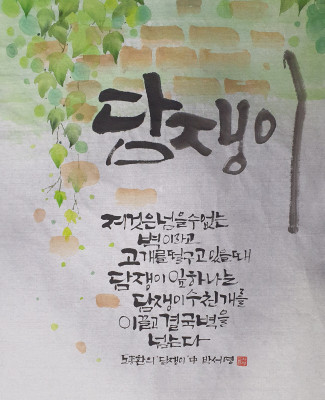 담쟁이
저것은 넘을 수 없는
벽이라고
고개를 떨구고 있을 때
담쟁이 잎 하나는
담쟁이 수천 개를
이끌고 결국 벽을
넘는다
도종환의 "담쟁이" 中